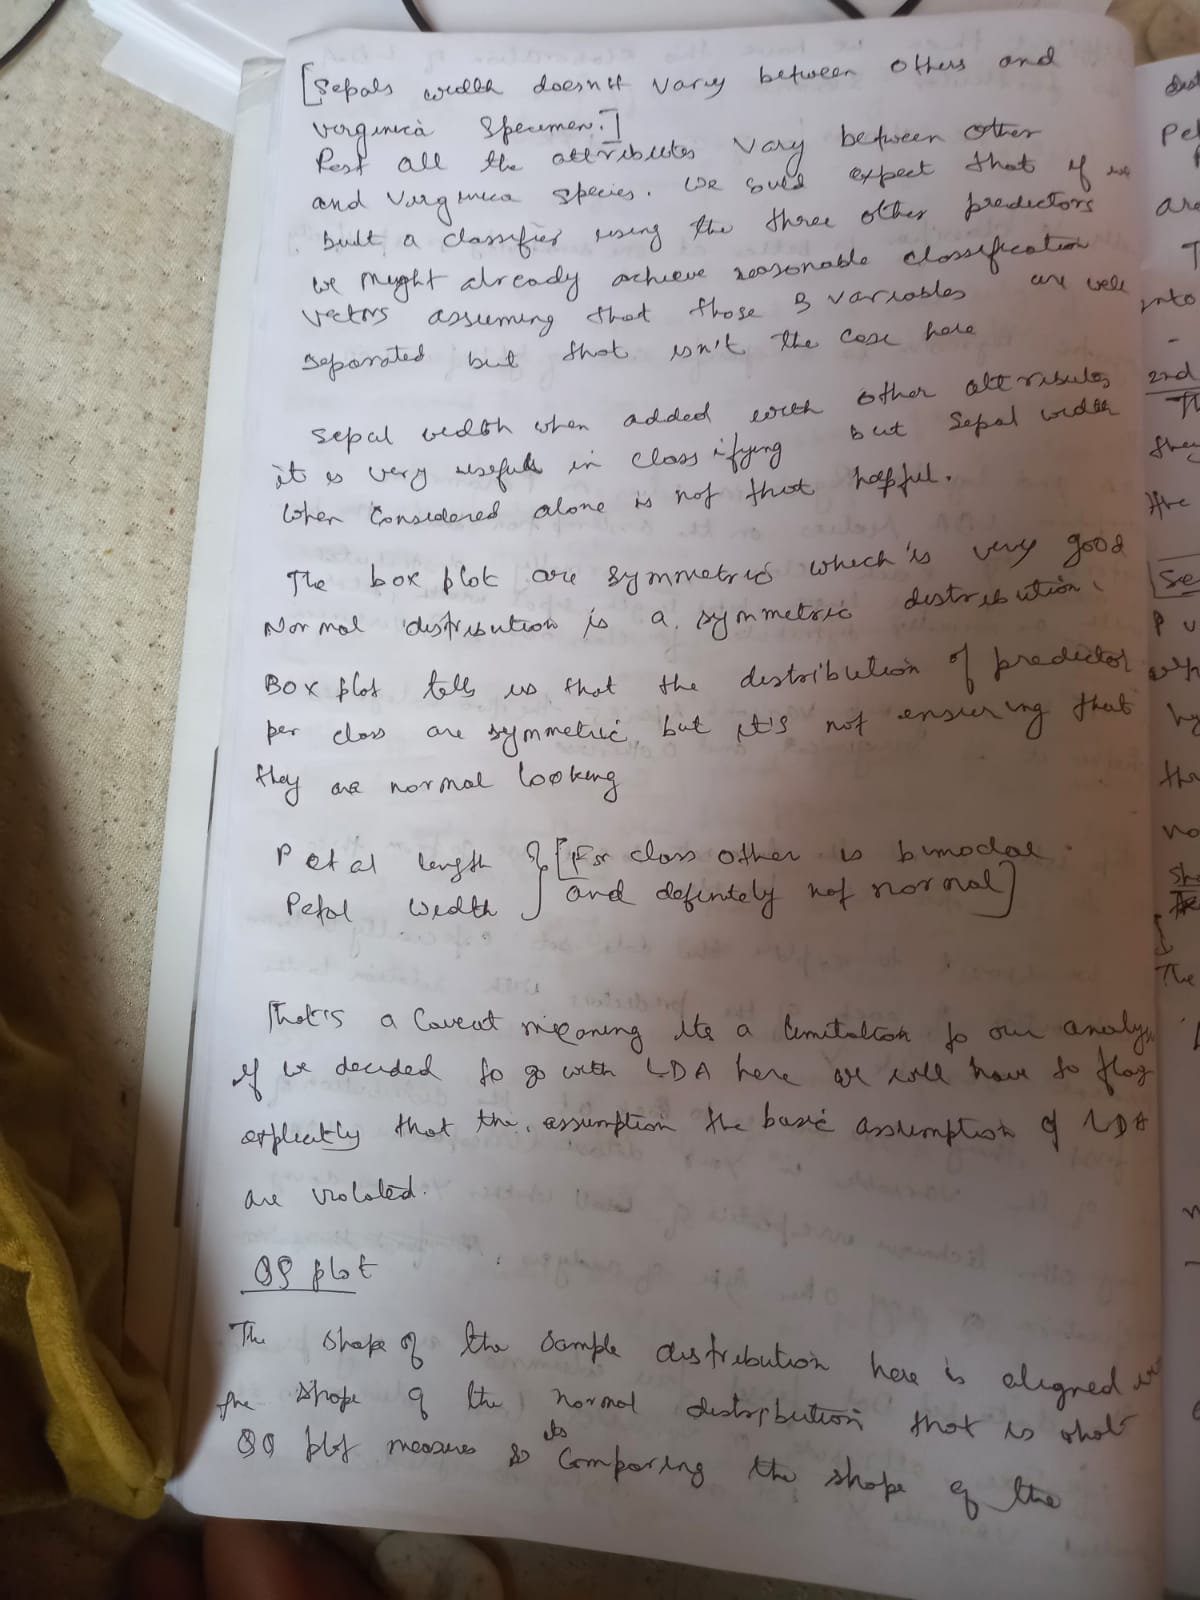 [Sepals width doesn't vary between others and
virginica Specimen.]
Rest all the attributes vary between other
and virginica species. We could expect that if we
built a classifier using the three other predictors
we might already achieve reasonable classification
vectors assuming that those 3 variables are well
separated but that isn't the case here
Sepal width when added with other attributes
it is very useful in classifying but Sepal width
when considered alone is not that helpful.
The box plot are symmetric which is very good
Normal distribution is a symmetric distribution.
Box plot tells us that the distribution of predictor
per class are symmetric, but it's not ensuring that
they are normal looking
Petal length } [For class other is bimodal
Petal width and definitely not normal]
That's a Caveat meaning its a limitation to our
if we decided to go with LDA here we will have to flag
explicitly that the assumption the basic assumption of LDA
are violated.
QQ plot
The shape of the sample distribution here is aligned
the shape of the normal distribution that is what
QQ plot measures its Comparing the shape of the
dist
Pet
are
T
into
-
2nd
Th
they
the
Se
Pu
by
thr
no
The